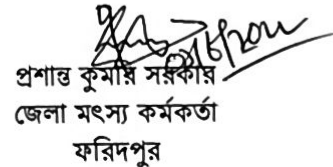 প্রশান্ত কুমার সরকার
জেলা মৎস্য কর্মকর্তা
ফরিদপুর